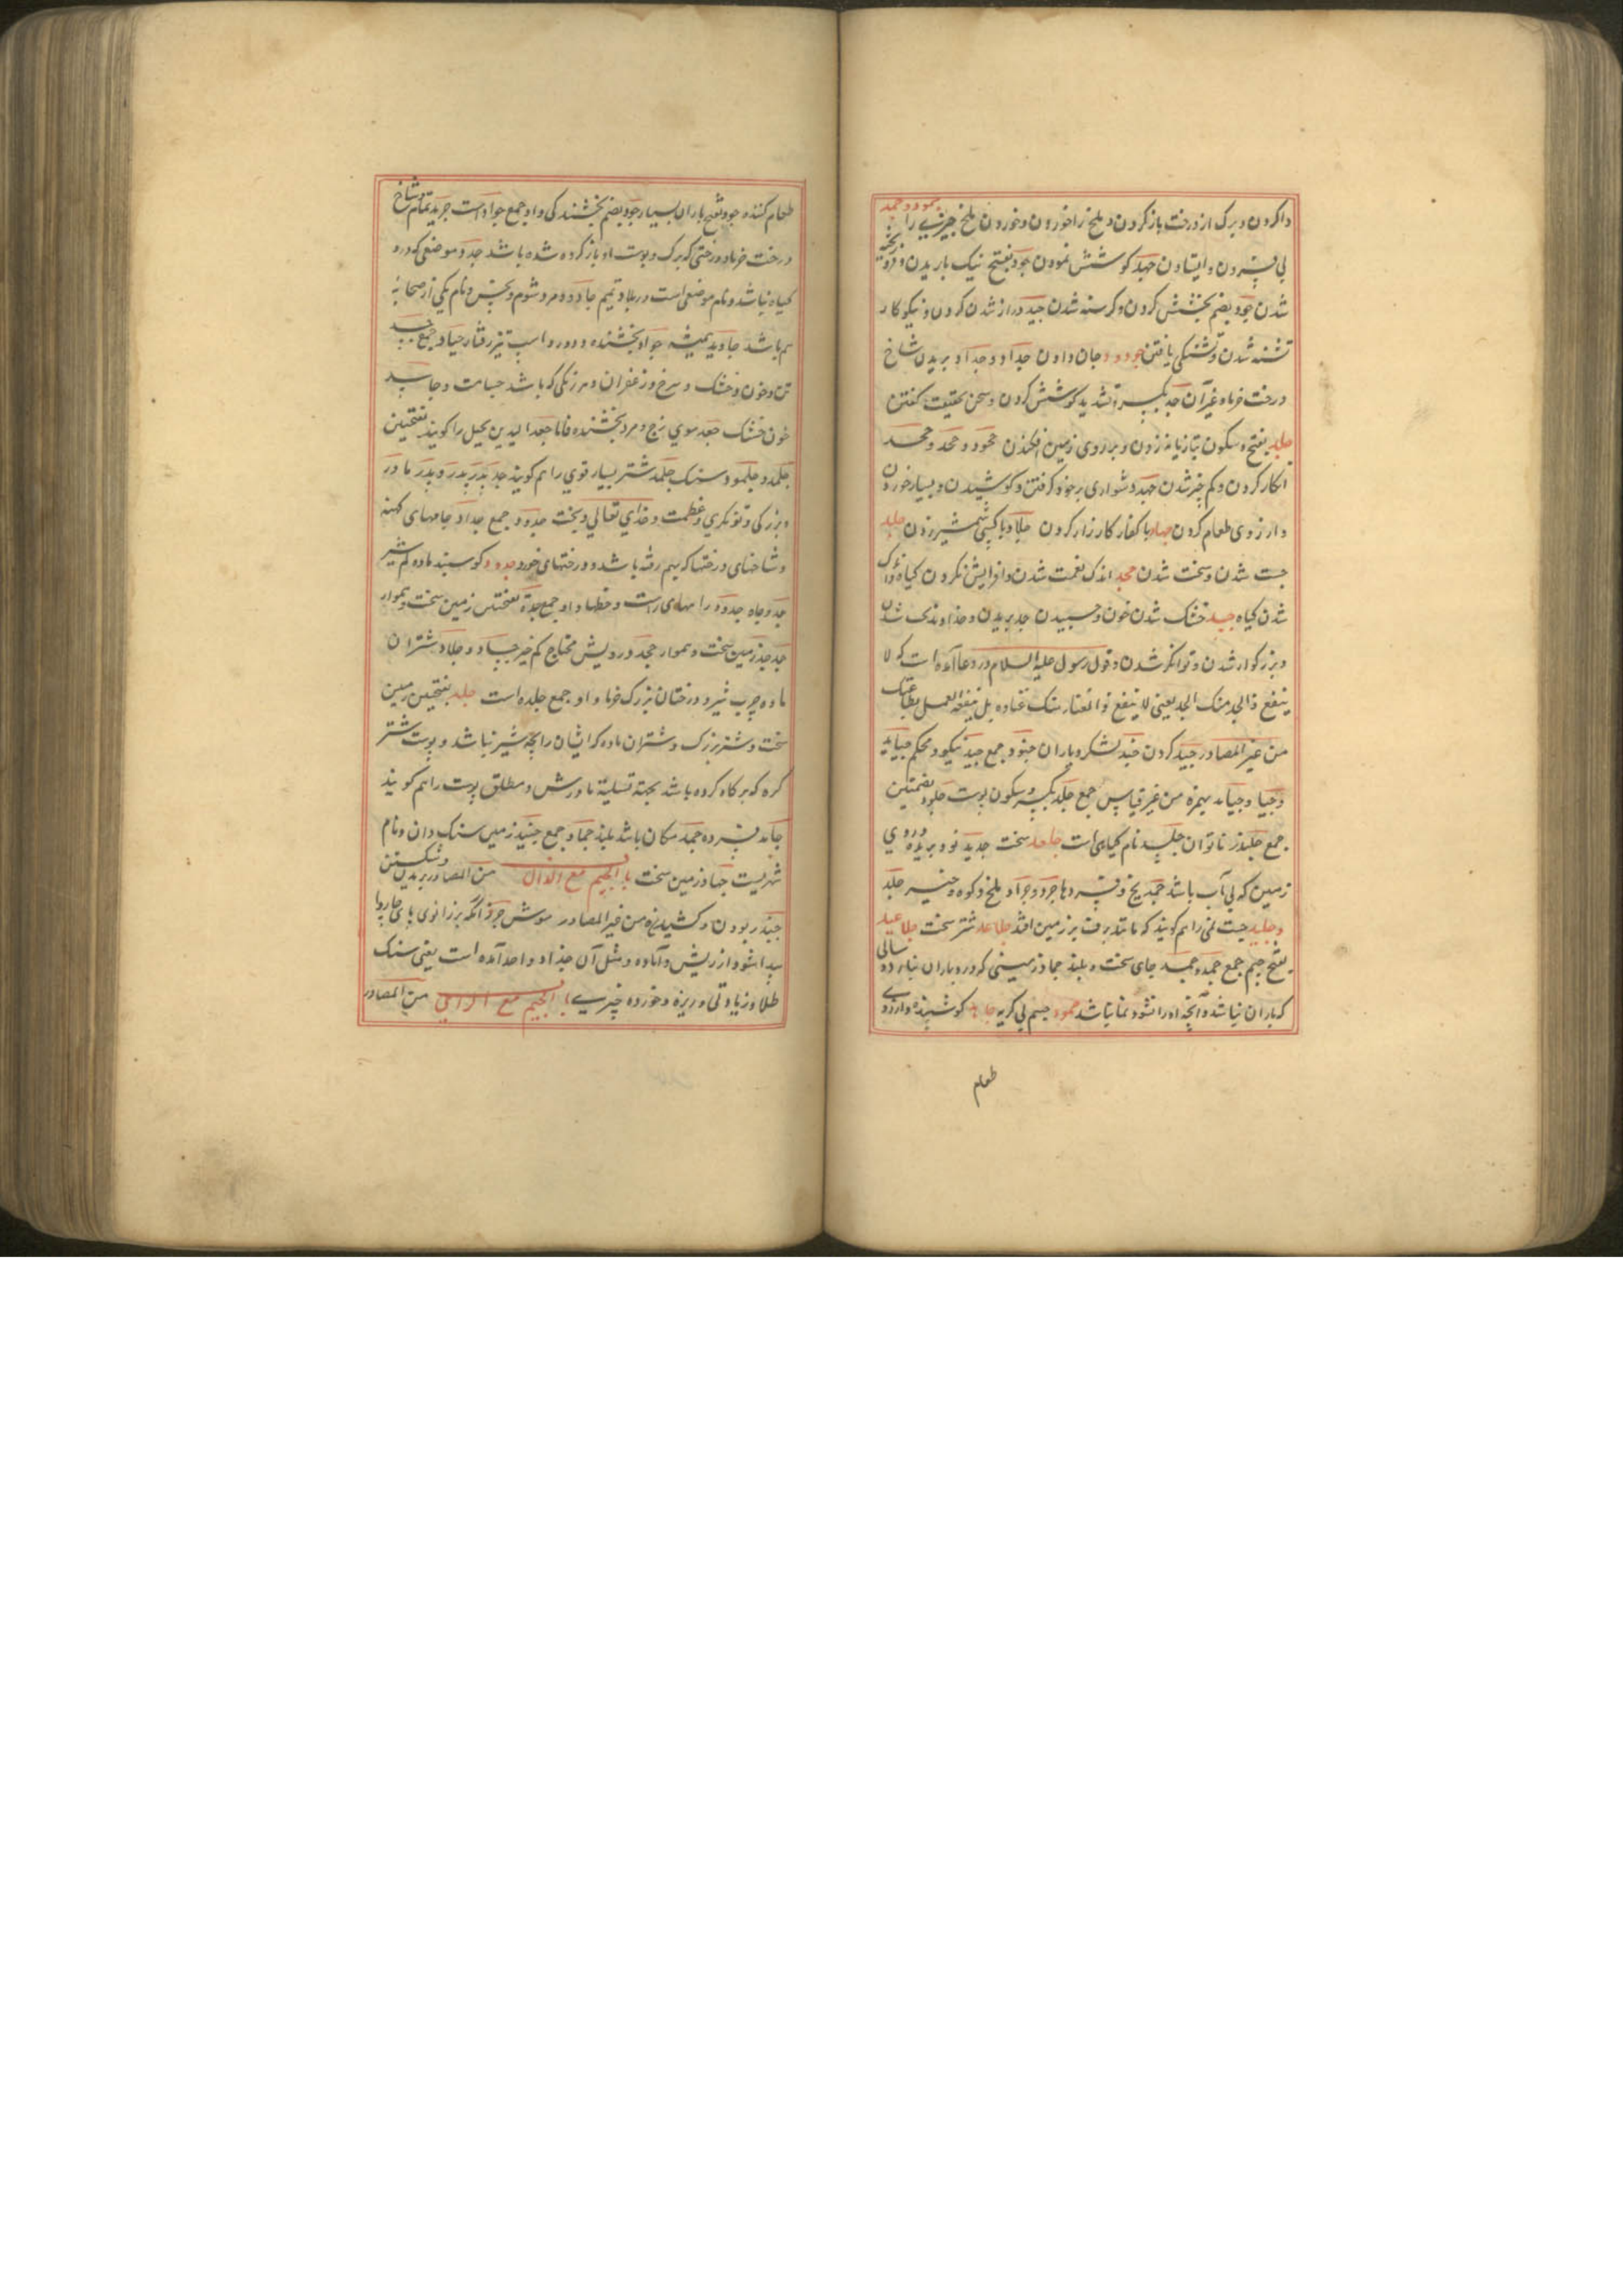 داکردن و برک از درخت باز کردن و ملخ را خوردن و خوردن ملخ چیزی را جمود و جمد
فسردن و ایستادن جهد کوشش نمودن جود بفتح نیک باریدن و
شدن جود بضم بخشش کردن و کرسنه شدن جید دراز شدن کردن و نیکوکار
تشنه شدن و تشنکی یافتن جوود جان دادن جداد و جداد بریدن شاخ
درخت خرما و غیر آن جد بکسر و تشدید کوشش کردن و سخن بحقیقت کفتن
جلد بفتح و سکون تازیانه زدن و بر روی زمین افکندن جحود و جحد و جحد
انکار کردن و کم خیر شدن جهد دشواری بر خود کرفتن و کوشیدن و بسیار خوردن
و ارزوی طعام کردن جهاد با کفار کارزار کردن جلاد با کسی شمشیر زدن جلد
جست شدن و سخت شدن جحد اندک نعمت شدن و افزایش نکردن کیاه و اندک
شدن کیاه جسد خشک شدن خون و چسپیدن جد بریدن و خداوند بخت شدن
و بزرکوار شدن و توانکر شدن و قول رسول علیه السلام در دعا آمده است که لا
ینفع ذا الجد منک الجد یعنی لا ینفع ذا الغنا منک غناوه بل ینفعه العمل بطاعتک
من غیر المصادر جید کردن جند لشکر و یاران جنود جمع جید نیکو و محکم جیاید
و جیاد و جیاید بهمزه من غیر قیاس جمع جلد بکسر و سکون پوست جلود بضمتین
جمع جلند ناتوان جلید نام کیاهی است جلعد سخت جدید نو و بریده و روی
زمین که بی آب باشد جمد یخ و فسردها جرد و جراد ملخ و کوه و جلد
و جلید جست نمی را هم کویند که مانند برف بر زمین افتد جلاعد شتر سخت جلاعید
بفتح جیم جمع جمد و جمد جای سخت و بلند جماد زمینی که درو باران نبارد و سالی
که باران نباشد و آنچه او را نشو و نما نباشد جمود چشم بی کریه جاهد کوشنده و ارزوی
طعام
طعام کننده جود بفتح باران بسیار جود بضم بخشندکی و او جمع جواد است جرید تمام و شاخ
درخت خرما و درختی که برک و پوست او باز کرده شده باشد جرد موضعی که درو
کیاه نباشد و نام موضعی است در بلاد تمیم جارود مرد شوم و نحس و نام یکی از صحابه
هم باشد جاوید همیشه جواد بخشنده و دورو اسب تیز رفتار جیاد جمع جسد
تن و خون و خشک و سرخ و زعفران و هر رنکی که باشد جسامت و جاسد
خون خشک جعد موی زج و مرد بخشنده فاما جعد الیدین بخیل را کویند بفتحتین
جلمد و جلمود سنک جلمد شتر بسیار قوی را هم کویند جد پدر پدر و پدر مادر
و بزرکی و توانکری و عظمت و خدای تعالی و بخت جدود جمع جداد جامهای کهنه
و شاخهای درختها که بهم رفته باشد و درختهای خورد جدود کوسپند ماده کم شیر
جد و چاه جدد راههای راست و خطها و او جمع جدة بفتحتین زمین سخت و هموار
جدجد زمین سخت و هموار جحد درویش محتاج کم خیر جباد و جلاد شتران
ماده چرب شیر و درختان بزرک خرما و او جمع جلده است جلد بفتحتین زمین
سخت و شتر بزرک و شتران ماده که ایشان را بچه و شیر نباشد و پوست شتر
کره که پر کاه کرده باشد بجهة تسلیة مادرش و مطلق پوست را هم کویند
جامد فسرده جمد مکان باشد بلند جماد جمع جنید زمین سنک دان و نام
شهریست جهاد زمین سخت باب الجیم مع الذال من المصادر بریدن و شکستن
جبذ ربودن و کشیدن من غیر المصادر موش جرذ آنکه بر زانوی پای چاروا
پیدا شود از ریش و آماده و مثل آن جذاذ واحد آمده است یعنی سنک
طلا و زیادتی و ریزه و خورده چیزی باب الجیم مع الرای من المصادر